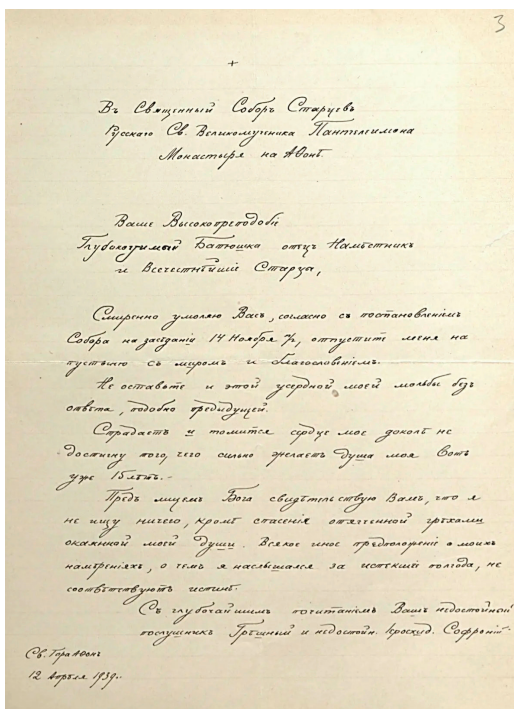 3
+
Въ Священный Соборъ Старцевъ
Русскаго Св. Великомученика Пантелеимона
Монастыря на Афонѣ.
Ваше Высокопреподобіе
Глубокочтимый Батюшка отецъ Намѣстникъ
и Всечестнѣйшіе Старцы,
Смиренно умоляю Васъ, согласно съ постановленіемъ
Собора на засѣданіи 14 Ноября, отпустите меня на
пустыню съ миромъ и благословеніемъ.
Не оставьте и этой усердной моей мольбы безъ
отвѣта, подобно предыдущей.
Страдаетъ и томится сердце мое доколѣ не
достигну того, чего сильно желаетъ душа моя вотъ
уже 15 лѣтъ.-
Предъ лицемъ Бога свидѣтельствую Вамъ, что я
не ищу ничего, кромѣ спасенія отягченной грѣхами
окаянной моей души. Всякое иное предположеніе о моихъ
намѣреніяхъ, о чемъ я наслышался за истекшіе полгода, не
соотвѣтствуютъ истинѣ.
Съ глубочайшимъ почитаніемъ Вашъ недостойный
послушникъ Грѣшный и недостойн. Іеросхид. Софроній.
Св. Гора Афонъ
12 Апрѣля 1939г.